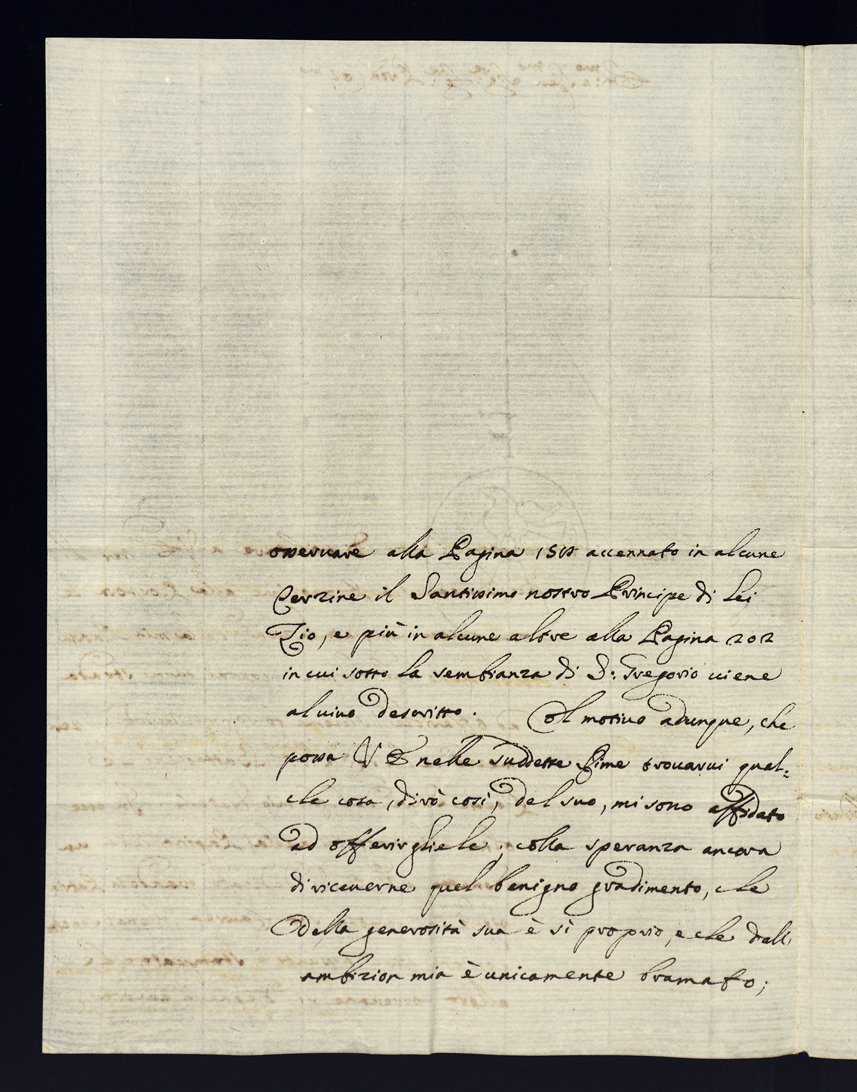 osseruare alla Pagina accennato in alcune
Terzine il Santissimo nostro Principe di Lei
Zio, e più in alcune altre alla Pagina 202
in cui sotto la sembianza di S: Gregorio uiene
al uiuo descritto. Col motiuo adunque, che
possa V. E. nelle suddette Rime trouarui qual=
che cosa, dirò così, del suo, mi sono affidato
ad offerirgliele; colla speranza ancora
di riceuerne quel benigno gradimento, che
della generosità sua è sì proprio, e che dall'
ambizion mia è unicamente bramato;